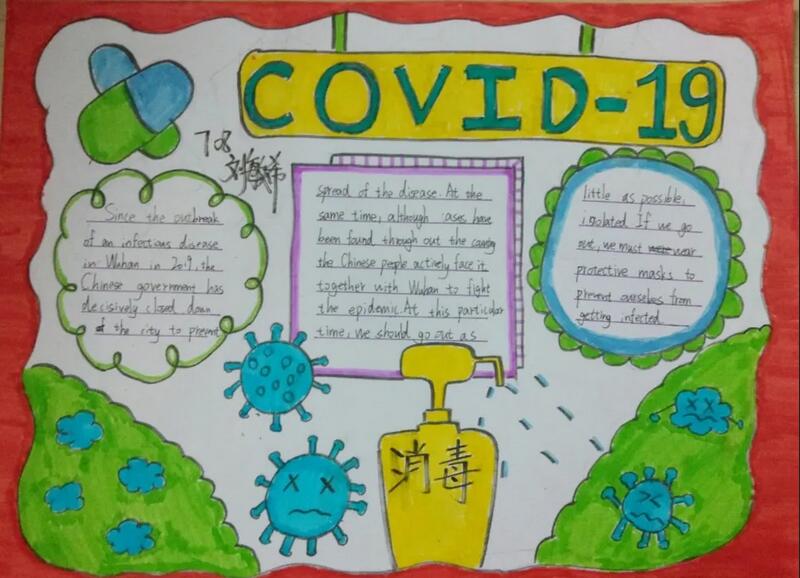 COVID-19
708
Since the outbreak
of an infectious disease
in Wuhan in 2019, the
Chinese government has
decisively closed down
of the city to prevent
spread of the disease. At the
same time, although cases have
been found through out the
the Chinese people actively face it
together with Wuhan to fight
the epidemic. At this particular
time, we should go out as
little as possible,
isolated If we go
out, we must wear
protective masks to
prevent ourselves from
getting infected.
消毒